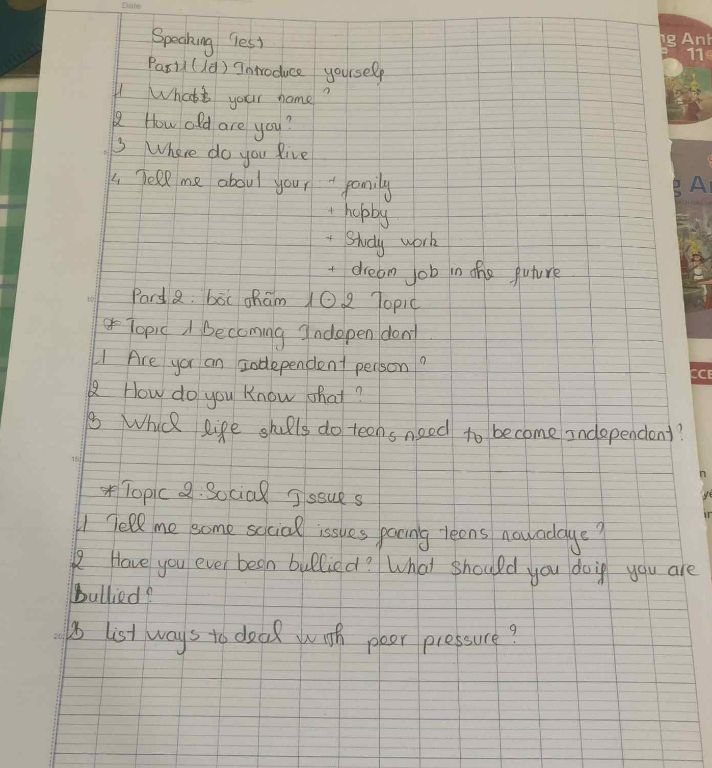 Date
Speaking Test
Part1 (1đ) Introduce yourself
1 What's your name?
2 How old are you?
3 Where do you live
4, Tell me about your + family
+ hobby
+ Study work
+ dream job in the future
Part 2. bốc thăm 1 2 Topic
* Topic 1 Becoming Independent
1 Are you an independent person?
2 How do you know that?
3 Which life skills do teens need to become independent?
* Topic 2. Social Issues
1 Tell me some social issues facing teens nowadays?
2 Have you ever been bullied? What should you do if you are
bullied?
3 list ways to deal with peer pressure?
ng Anh
11
g A